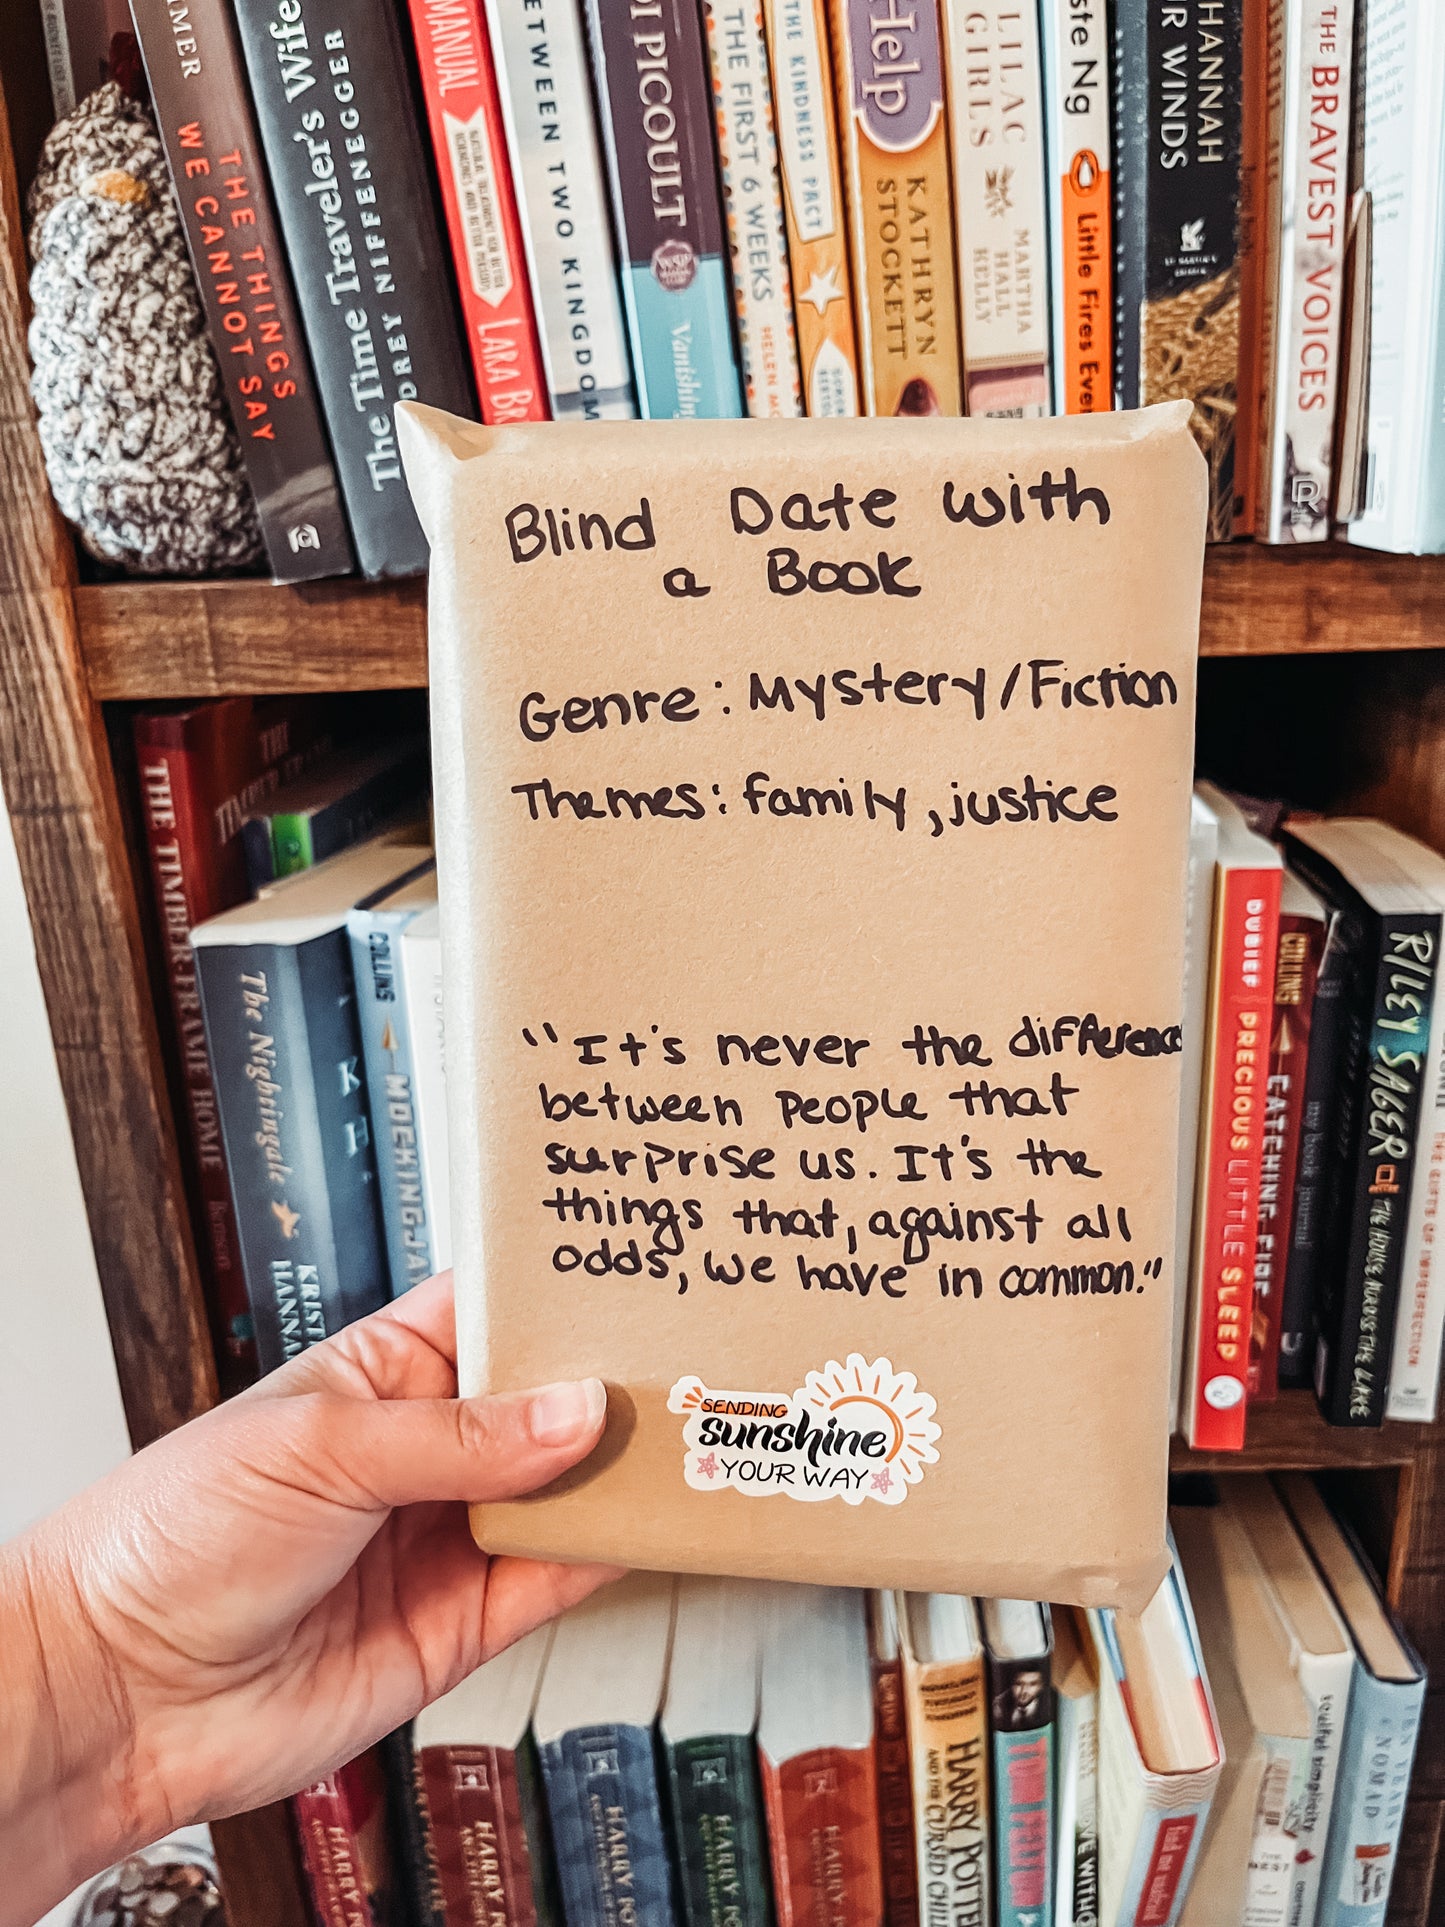 IMMER
THE THINGS
WE CANNOT SAY
The Time Traveler's Wife
DREY NIFFENEGGER
MANUAL
LARA BR
BETWEEN TWO KINGDOM
DI PICOULT
Vanishin
THE FIRST 6 WEEKS
HELEN MO
THE KINDNESS PACT
Help
KATHRYN
STOCKETT
LILAC
GIRLS
MARTHA
HALL
KELLY
ste Ng
Little Fires Ever
HANNAH
UR WINDS
THE BRAVEST VOICES
Blind Date with
a Book
Genre: Mystery/Fiction
Themes: family, justice
"It's never the difference
between people that
surprise us. It's the
things that, against all
odds, we have in common."
SENDING
sunshine
YOUR WAY
THE TIMBER FRAME HOME
The Nightingale
KRIST
HANNA
COLLINS
MOCKINGJA
DUBIEF PRECIOUS LITTLE SLEEP
COLLINS
CATCHING FIRE
my book journal
RILEY SAGER
THE HOUSE ACROSS THE LAKE
THE GIFTS OF IMPERFECTION
HARRY
HARRY
HARRY PO
HARRY P
HARRY
HARRY POTTER
AND THE CURSED CHIL
LOVE WITHO
soulful simplicity
TEN YEARS
a NOMAD